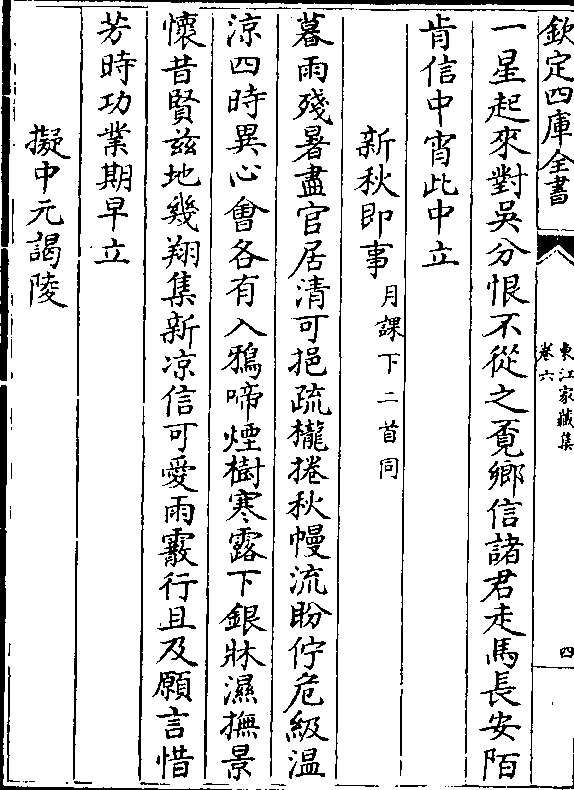 欽定四庫全書
東江家藏集
卷六
四
一星起來對吳分恨不從之覔鄉信諸君走馬長安陌
肯信中宵此中立
新秋即事月課下二首同
暮雨殘暑盡官居清可挹疏櫳捲秋幔流盼佇危級温
涼四時異心會各有入鴉啼煙樹寒露下銀牀濕撫景
懷昔賢兹地幾翔集新凉信可愛雨霰行且及願言惜
芳時功業期早立
擬中元謁陵